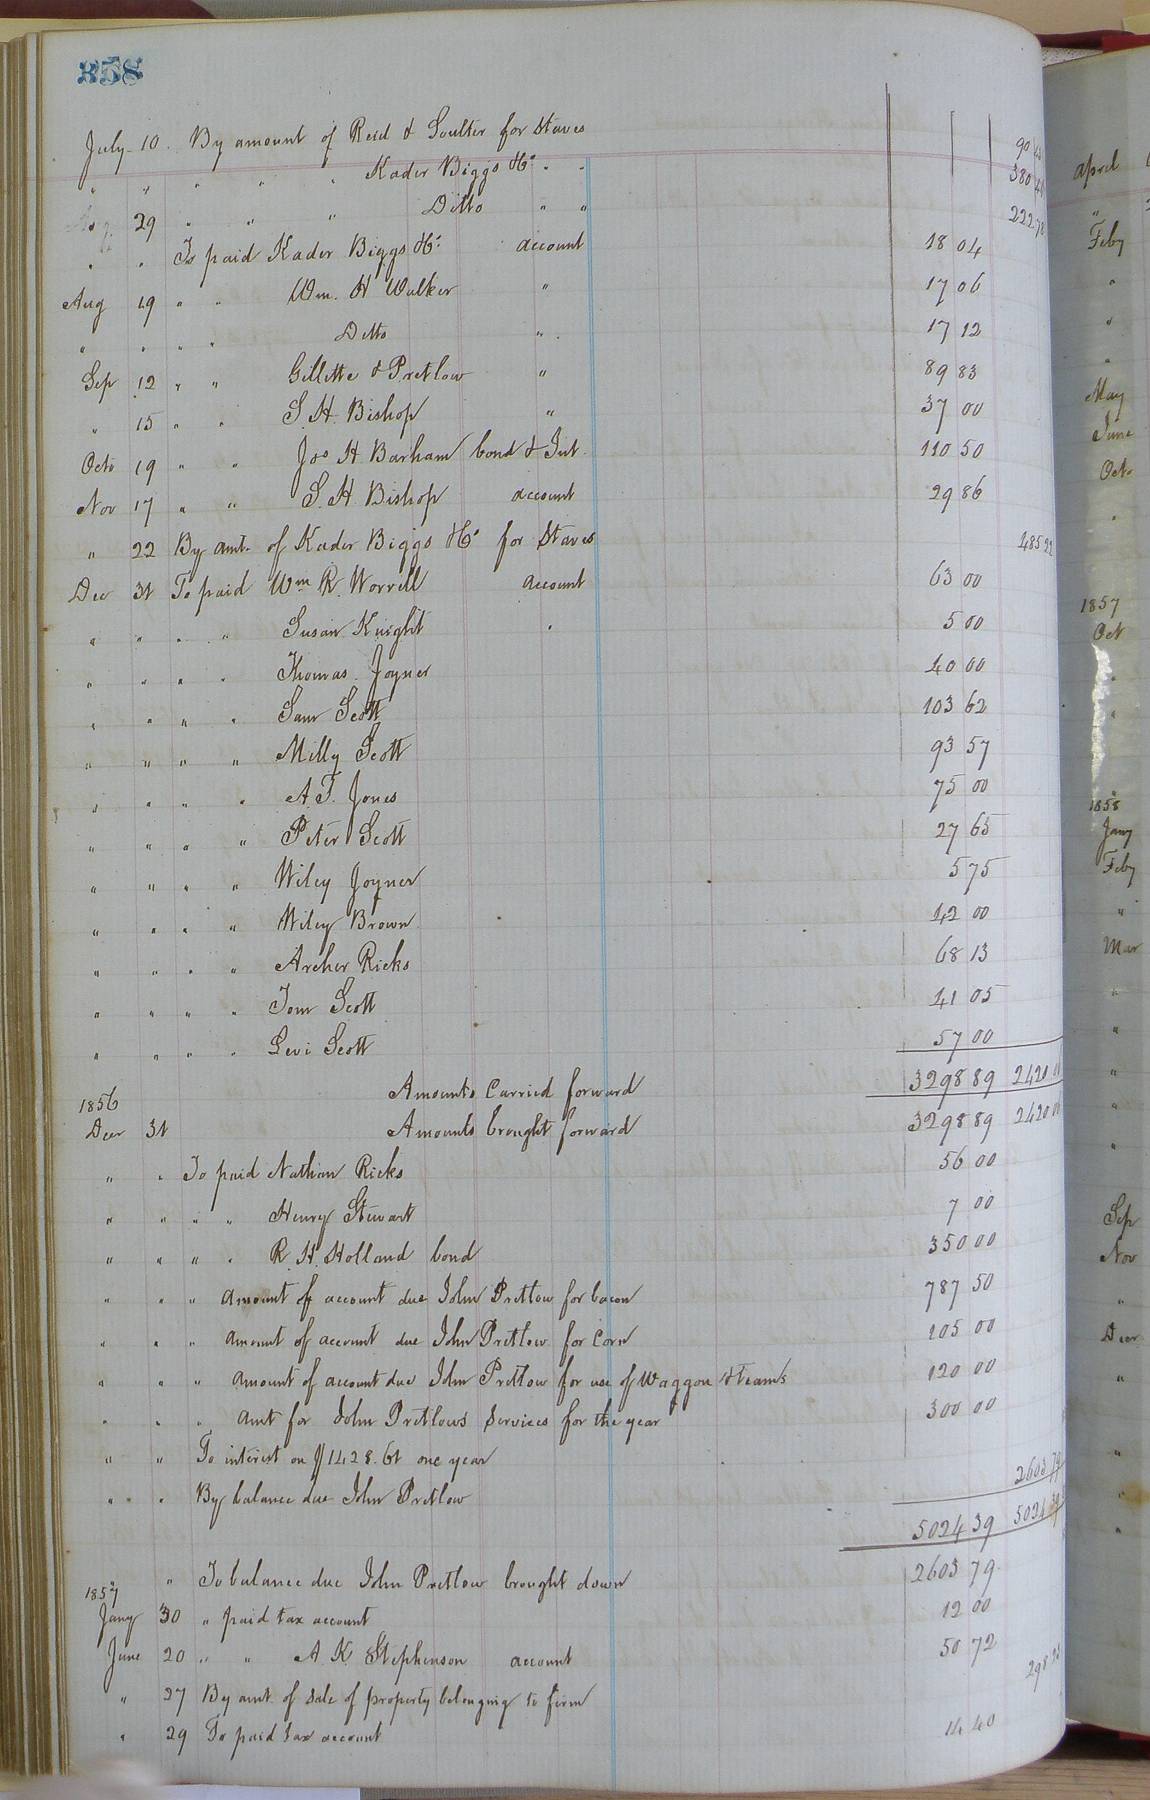 358
July 10. By amount of Reid & Soulter for Staves 90
" " " " " Kader Biggs & Co " " 380
29 " " " Ditto " " 222 78
" " To paid Kader Biggs & Co account 18 04
Aug 19 " " Wm. H Walker " 17 06
" " " " Ditto " 17 12
Sep 12 " " Gillette & Pretlow " 89 83
" 15 " " S. H. Bishop " 37 00
Octo 19 " " Jos H Barham bond & Int 110 50
Nov 17 " " S. H. Bishop account 29 86
" 22 By amt. of Kader Biggs & Co for Staves 485 22
Dec 31 To paid Wm R. Worrell account 63 00
" " " " Susan Knight " 5 00
" " " " Thomas Joyner 40 00
" " " " Sam Scott 103 62
" " " " Milly Scott 93 57
" " " " A. F. Jones 75 00
" " " " Peter Scott 27 65
" " " " Wiley Joyner 5 75
" " " " Wiley Brown 42 00
" " " " Archer Ricks 68 13
" " " " Tom Scott 41 05
" " " " Levi Scott 57 00
Amounts Carried forward 3298 89 2420
1856
Decr 31 Amounts brought forward 3298 89 2420
" " To paid Nathan Ricks 56 00
" " " " Henry Stewart 7 00
" " " " R. H. Holland bond 350 00
" " " Amount of account due John Pretlow for bacon 787 50
" " " Amount of account due John Pretlow for Corn 105 00
" " " Amount of account due John Pretlow for use of Waggon & teams 120 00
" " " Amt for John Pretlow's Services for the year 300 00
" " To interest on $1428.61 one year
" " By balance due John Pretlow 2603 79
5024 39 5024 39
" To balance due John Pretlow brought down 2603 79
1857
Jany 30 " paid tax account 12 00
June 20 " " A. K. Stephenson account 50 72
" 27 By amt. of sale of property belonging to firm 298
" 29 To paid tax account 14 40
April
"
Feby
"
"
"
May
June
Octo
"
1857
Oct
"
"
1858
Jany
Feby
"
Mar
"
"
"
"
"
Sep
Nov
"
Decr
"
"
"
"